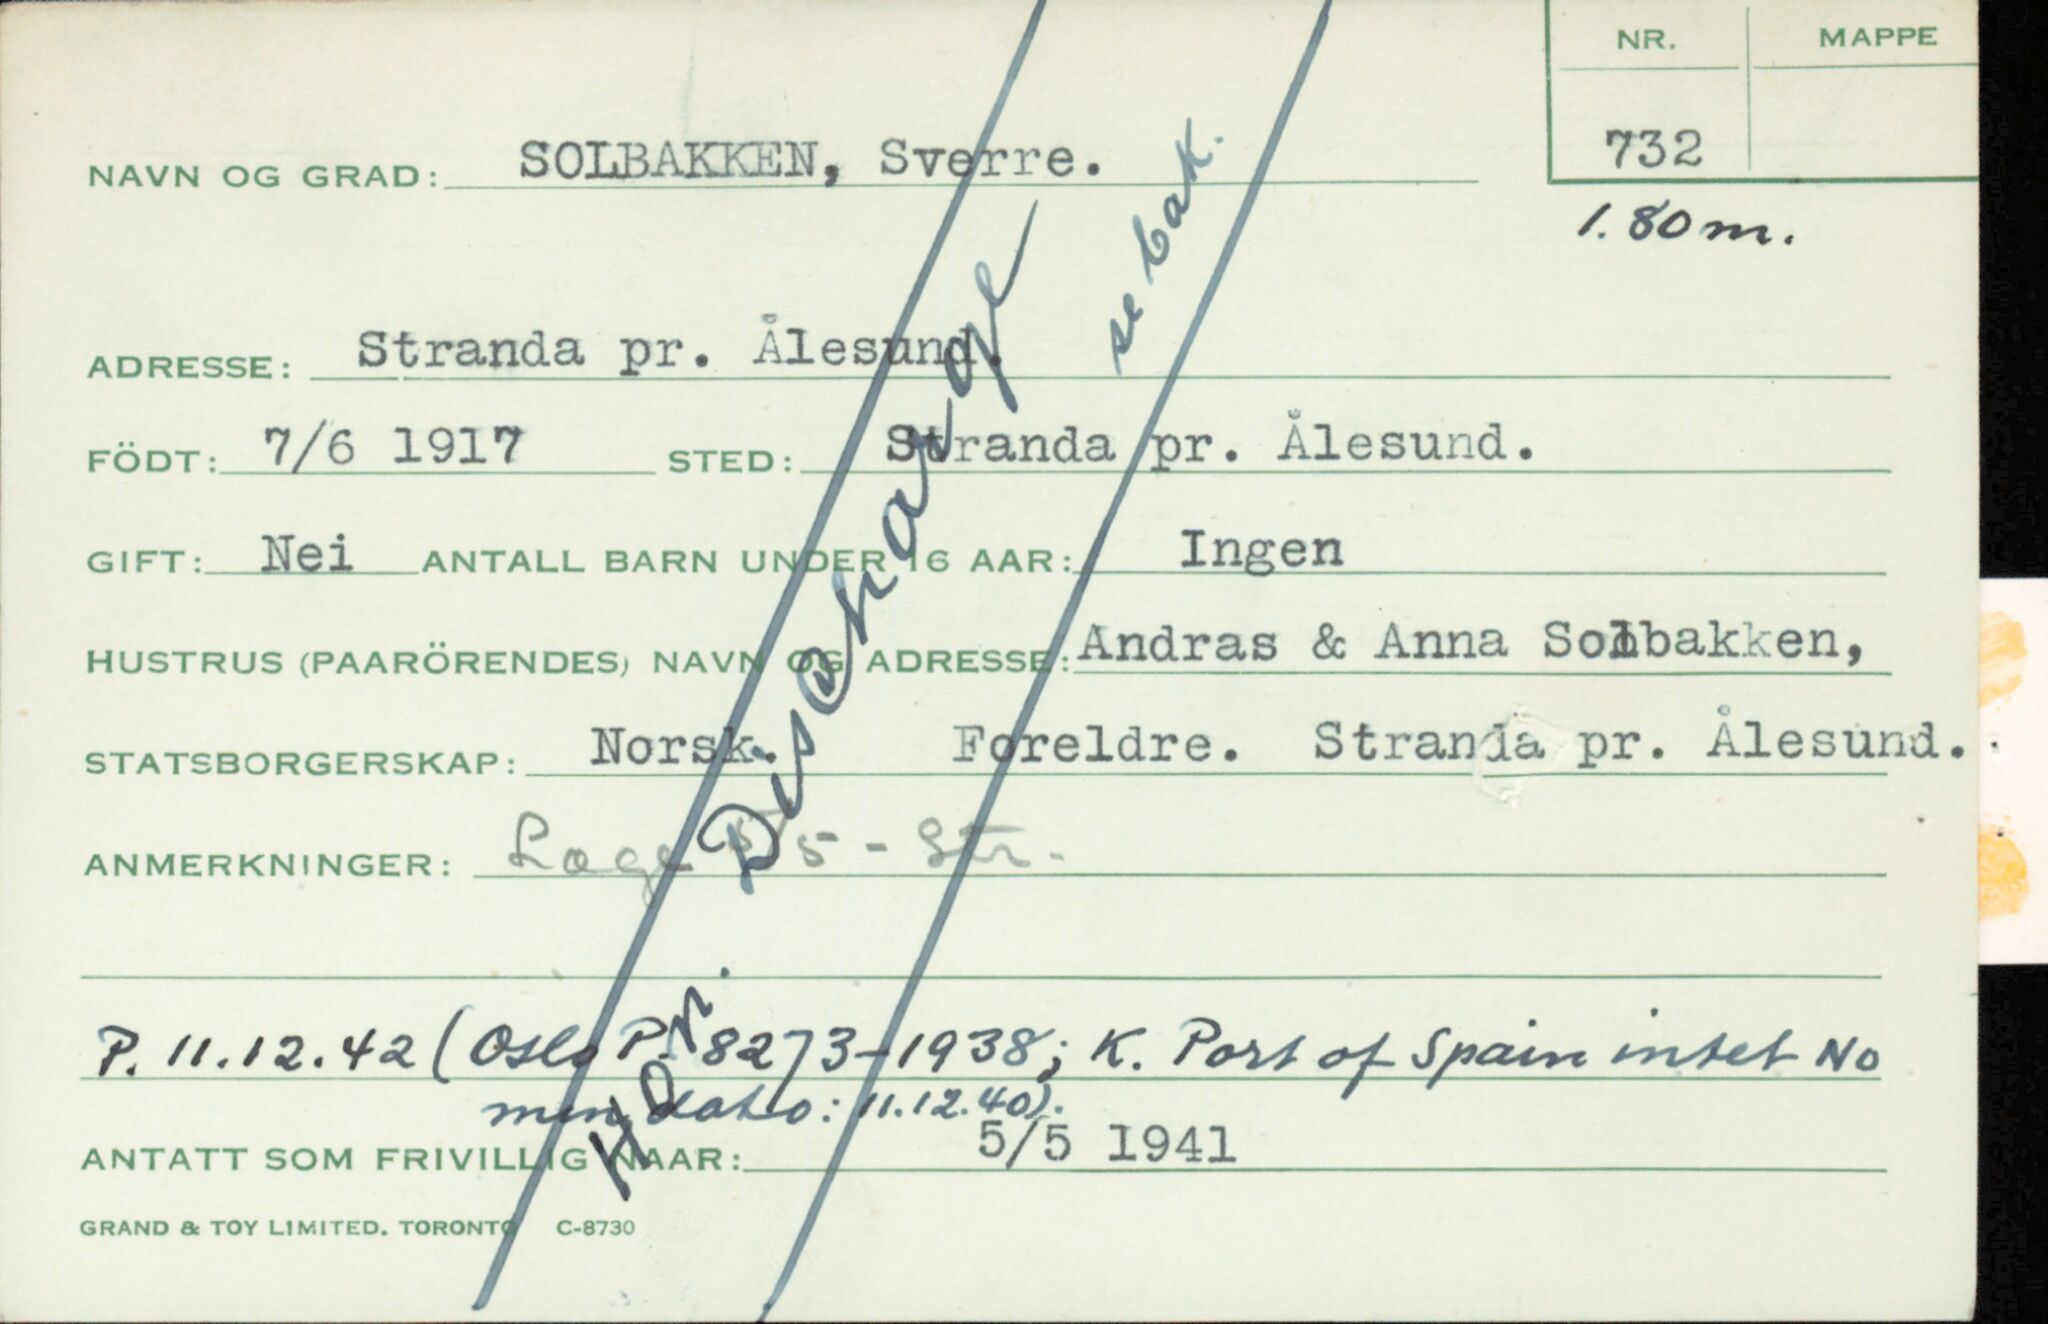 NR. MAPPE
NAVN OG GRAD: SOLBAKKEN, Sverre. 732
1.80 m.
se bak.
ADRESSE: Stranda pr. Ålesund.
FÖDT: 7/6 1917 STED: Stranda pr. Ålesund.
GIFT: Nei ANTALL BARN UNDER 16 AAR: Ingen
HUSTRUS (PAARÖRENDES) NAVN OG ADRESSE: Andras & Anna Solbakken,
STATSBORGERSKAP: Norsk. Foreldre. Stranda pr. Ålesund.
ANMERKNINGER:
Discharge
P. 11.12.42 (Oslo P. 8273-1938; K. Port of Spain intet No
men dato: 11.12.40).
ANTATT SOM FRIVILLIG NAAR: 5/5 1941
GRAND & TOY LIMITED. TORONTO C-8730